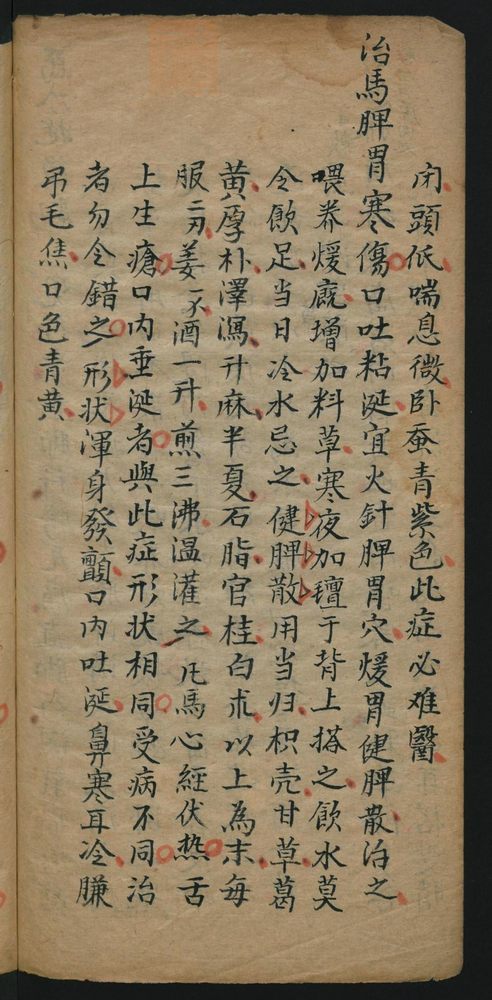 闭頭低喘息微卧蚕青紫色此症必难醫
治馬脾胃寒傷口吐粘涎宜火針脾胃穴煖胃健脾散治之
喂养煖廐增加料草寒夜加氊于背上搭之飲水莫
令飲足当日冷水忌之健脾散用当归枳壳甘草葛
黄厚朴澤瀉升麻半夏石脂官桂白朮以上為末每
服二刃姜一不酒一升煎三沸温灌之凡馬心經伏热舌
上生瘡口内垂涎者與此症形状相同受病不同治
者勿令錯之形状渾身發顫口内吐涎鼻寒耳冷膁
吊毛焦口色青黄